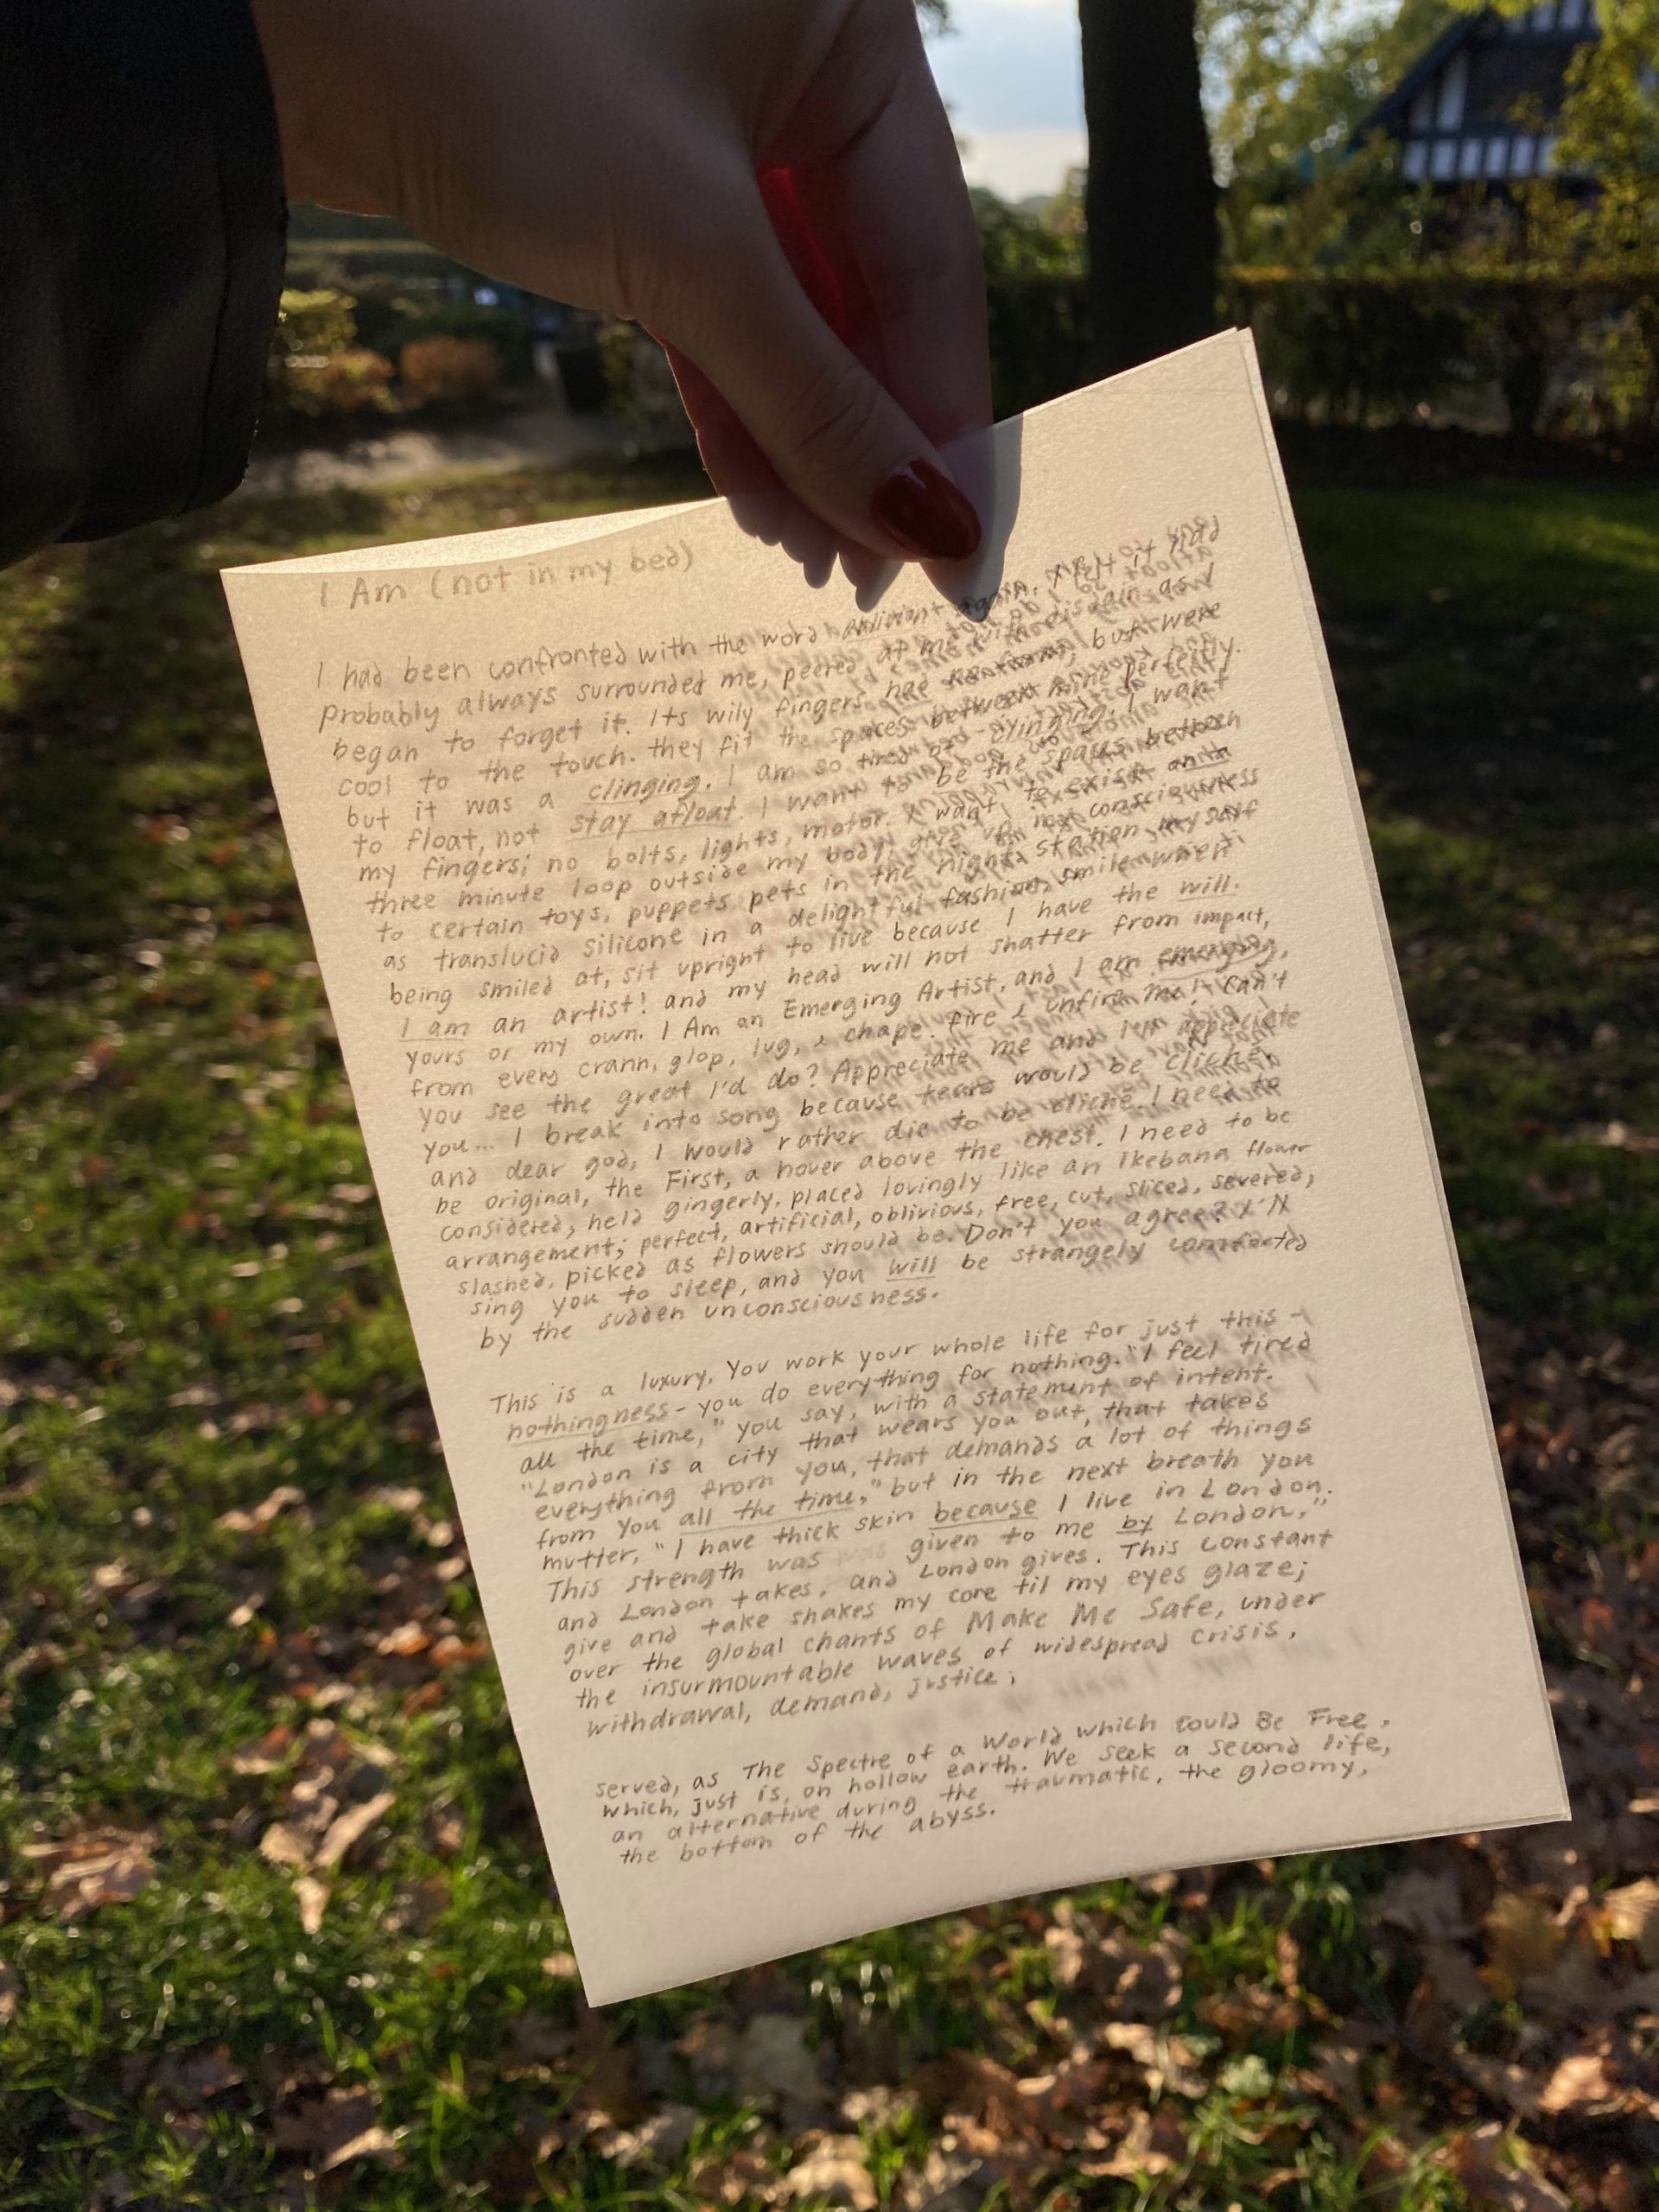 I Am (not in my bed)
I had been confronted with the word again. it had
probably always surrounded me, peered at me with disdain as I
began to forget it. Its wily fingers had no form, but were
cool to the touch. they fit the spaces between mine perfectly.
but it was a clinging. I am so tired of clinging. I want
to float, not stay afloat. I want to be the spaces between
my fingers; no bolts, lights, motor. I want to exist on a
three minute loop outside my body, give up my consciousness
to certain toys, puppets pets in the night, station myself
as translucid silicone in a delightful fashion, smile when
being smiled at, sit upright to live because I have the will.
I am an artist! and my head will not shatter from impact,
yours or my own. I Am an Emerging Artist, and I am emerging,
from every crann, glop, lug, & chape. fire & unfire me! Can't
you see the great I'd do? Appreciate me and I'll appreciate
you... I break into song because tears would be cliché.
and dear god, I would rather die to be cliché. I need to
be original, the First, a hover above the chest. I need to be
considered, held gingerly. placed lovingly like an Ikebana flower
arrangement; perfect, artificial, oblivious, free, cut, sliced, severed,
slashed, picked as flowers should be. Don't you agree? I'll
sing you to sleep, and you will be strangely comforted
by the sudden unconsciousness.
This is a luxury. You work your whole life for just this -
nothingness - you do everything for nothing. "I feel tired
all the time," you say, with a statement of intent.
"London is a city that wears you out, that takes
everything from you, that demands a lot of things
from you all the time," but in the next breath you
mutter, "I have thick skin because I live in London.
This strength was given to me by London,"
and London takes, and London gives. This constant
give and take shakes my core til my eyes glaze;
over the global chants of Make Me Safe, under
the insurmountable waves of widespread crisis,
withdrawal, demand, justice;
served, as The Spectre of a World which Could Be Free,
which, just is, on hollow earth. We seek a second life,
an alternative during the traumatic, the gloomy,
the bottom of the abyss.